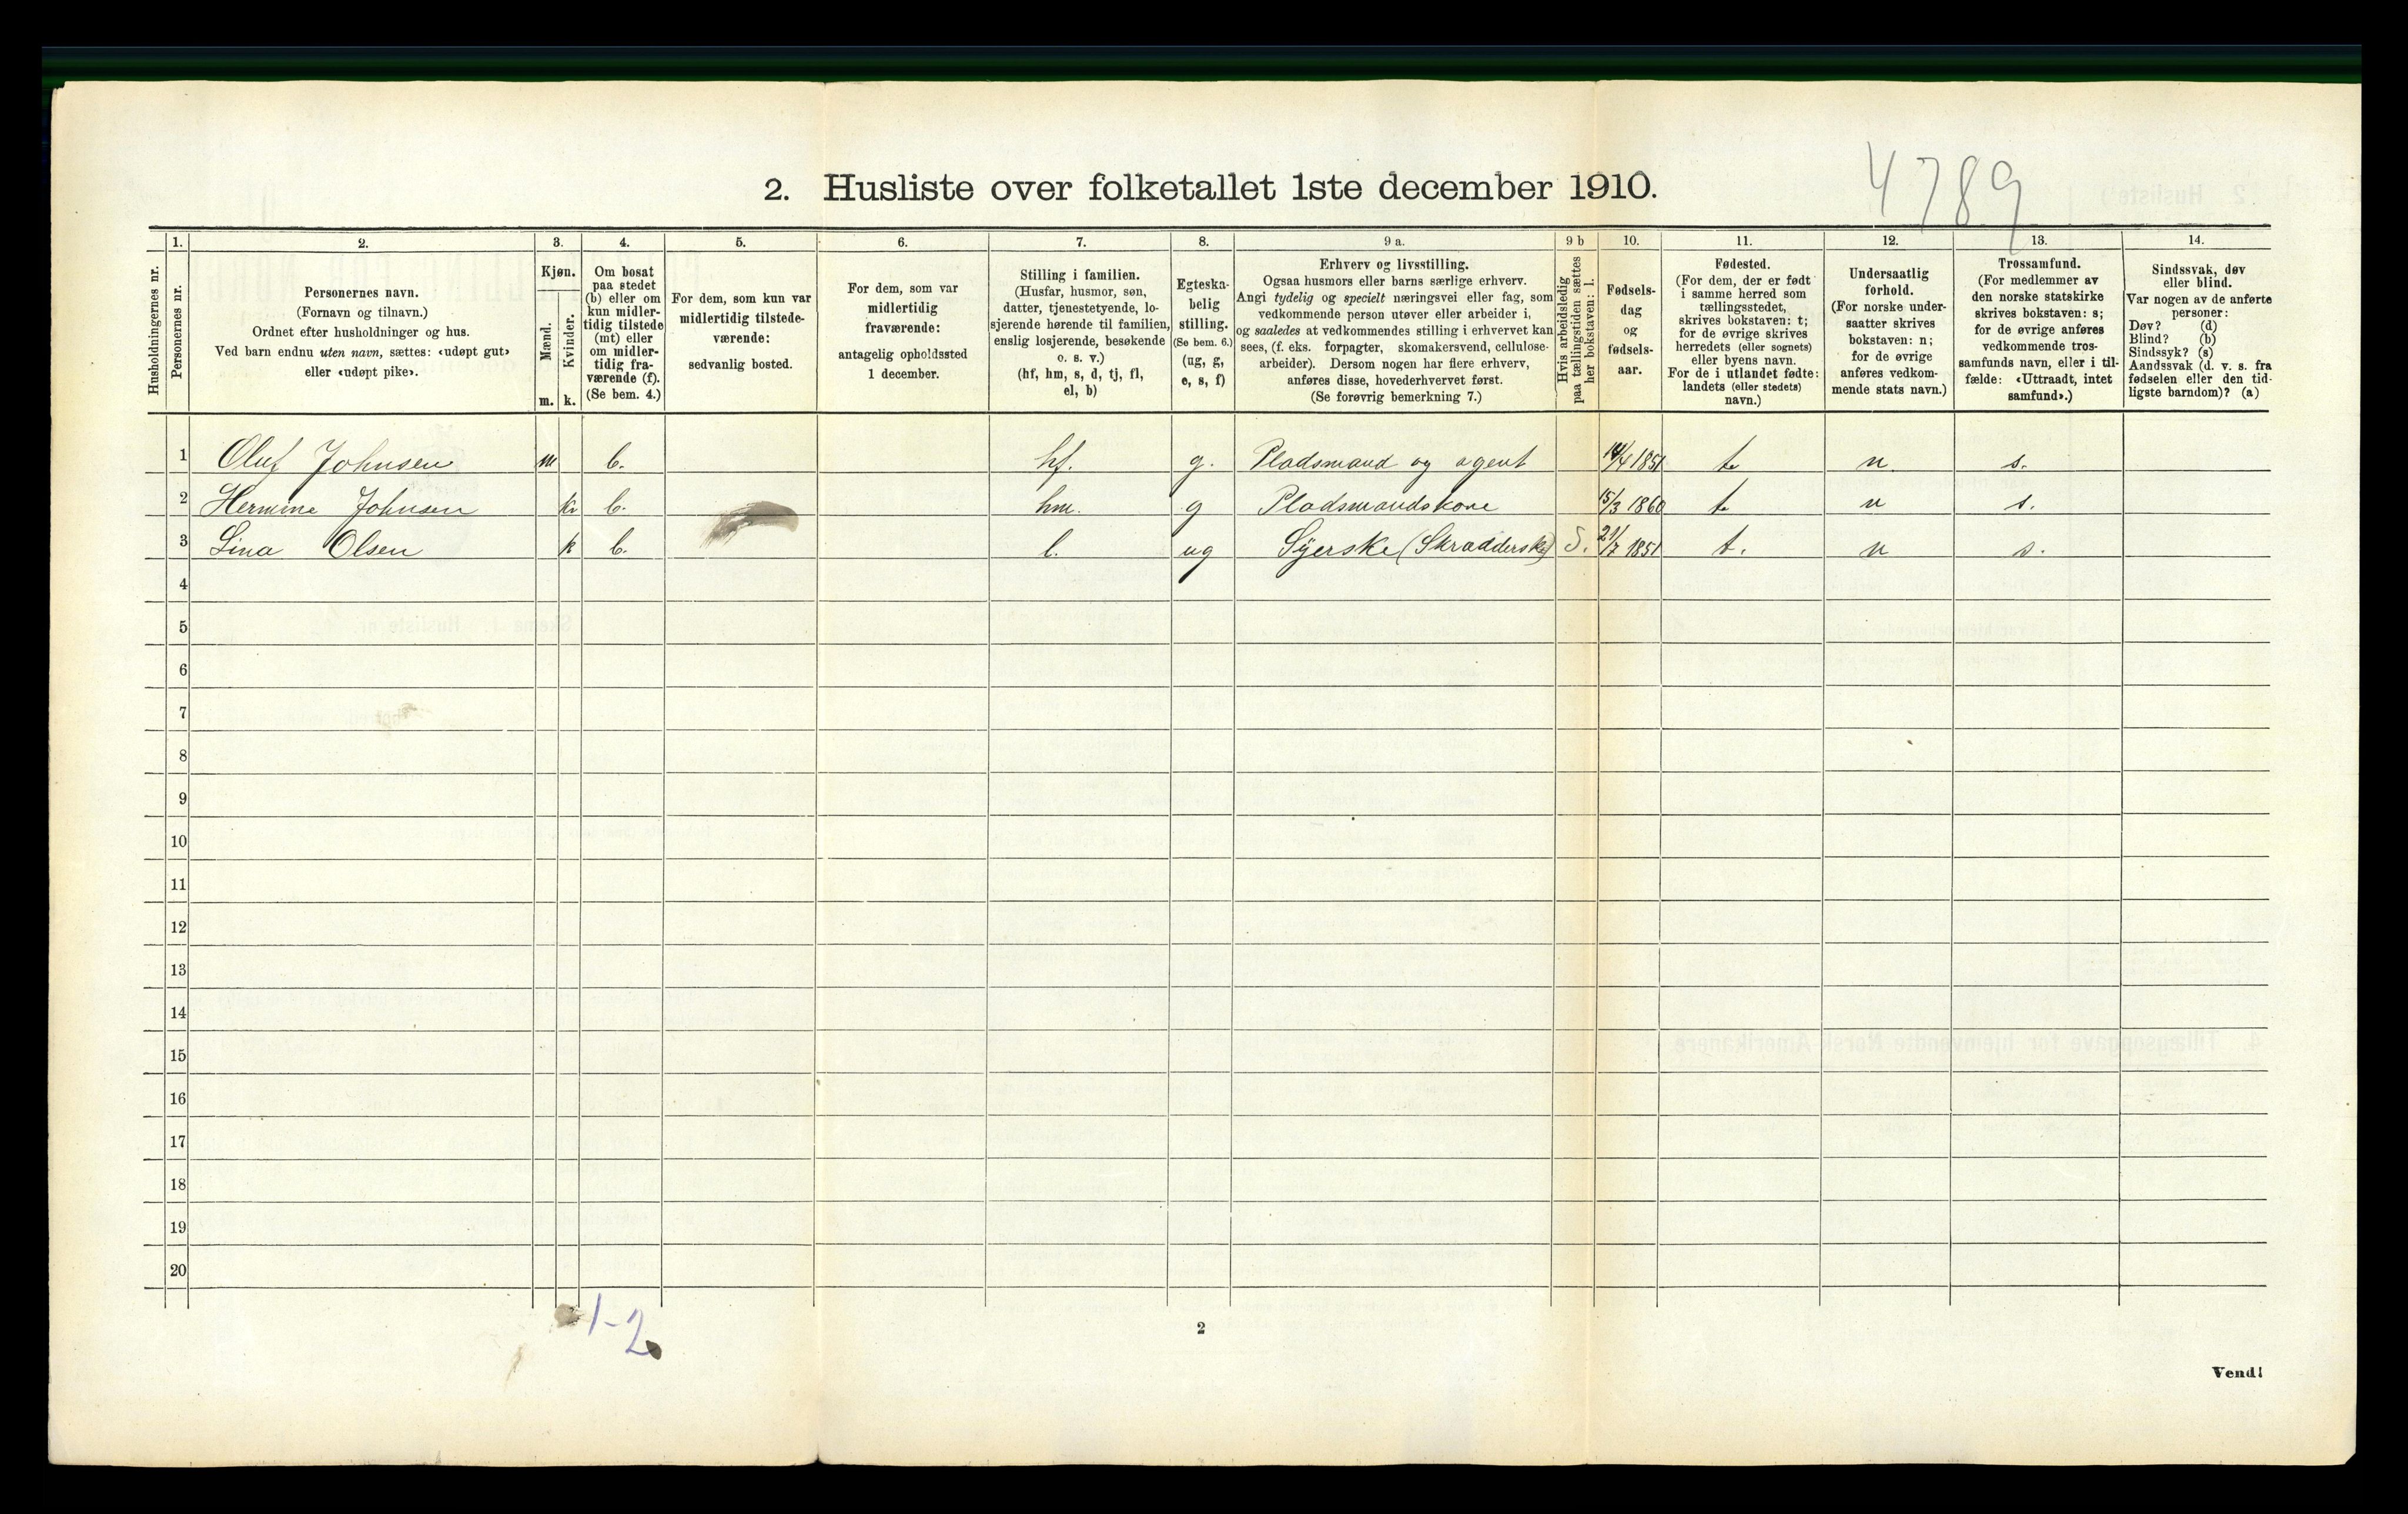 4789
2. Husliste over folketallet 1ste december 1910.
Husholdningernes nr.
1. 2. 3. 4. 5. 6. 7. 8. 9 a. 9 b 10. 11. 12. 13. 14.
Personernes nr.
Personernes navn.
(Fornavn og tilnavn.)
Ordnet efter husholdninger og hus.
Ved barn endnu uten navn, sættes: «udøpt gut»
eller «udøpt pike».
Kjøn.
Mænd.
Kvinder.
m. k.
Om bosat
paa stedet
(b) eller om
kun midler-
tidig tilstede
(mt) eller
om midler-
tidig fra-
værende (f).
(Se bem. 4.)
For dem, som kun var
midlertidig tilstede-
værende:
sedvanlig bosted.
For dem, som var
midlertidig
fraværende:
antagelig opholdssted
1 december.
Stilling i familien.
(Husfar, husmor, søn,
datter, tjenestetyende, lo-
sjerende hørende til familien,
enslig losjerende, besøkende
o. s. v.)
(hf, hm, s, d, tj, fl,
el, b)
Egteska-
belig
stilling.
(Se bem. 6.)
(ug, g,
e, s, f)
Erhverv og livsstilling.
Ogsaa husmors eller barns særlige erhverv.
Angi tydelig og specielt næringsvei eller fag, som
vedkommende person utøver eller arbeider i,
og saaledes at vedkommendes stilling i erhvervet kan
sees, (f. eks. forpagter, skomakersvend, cellulose-
arbeider). Dersom nogen har flere erhverv,
anføres disse, hovederhvervet først.
(Se forøvrig bemerkning 7.)
Hvis arbeidsledig
paa tællingstiden sættes
her bokstaven: l.
Fødsels-
dag
og
fødsels-
aar.
Fødested.
(For dem, der er født
i samme herred som
tællingsstedet,
skrives bokstaven: t;
for de øvrige skrives
herredets (eller sognets)
eller byens navn.
For de i utlandet fødte:
landets (eller stedets)
navn.)
Undersaatlig
forhold.
(For norske under-
saatter skrives
bokstaven: n;
for de øvrige
anføres vedkom-
mende stats navn.)
Trossamfund.
(For medlemmer av
den norske statskirke
skrives bokstaven: s;
for de øvrige anføres
vedkommende tros-
samfunds navn, eller i til-
fælde: «Uttraadt, intet
samfund».)
Sindssvak, døv
eller blind.
Var nogen av de anførte
personer:
Døv? (d)
Blind? (b)
Sindssyk? (s)
Aandssvak (d. v. s. fra
fødselen eller den tid-
ligste barndom)? (a)
1 Oluf Johnsen m b. hf. g. Pladsmand og agent 14/4 1851 t n s.
2 Hermine Johnsen k b. hm. g Pladsmandskone 15/3 1860 t n s.
3 Lina Olsen k b. l. ug Syerske (Skrædderske) S. 21/7 1851 t. n s.
4
5
6
7
8
9
10
11
12
13
14
15
16
17
18
19
20
1-2
2
Vend!